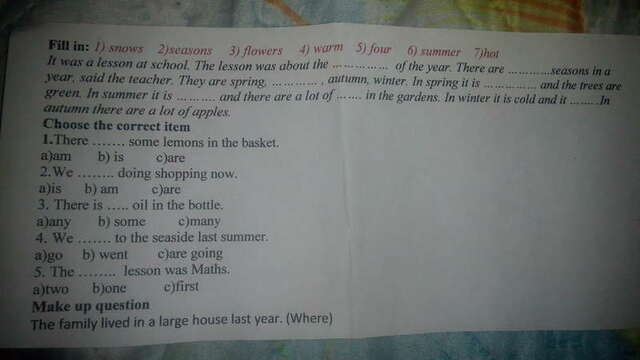 Fill in: 1) snows 2)seasons 3) flowers 4) warm 5) four 6) summer 7)hot
It was a lesson at school. The lesson was about the …………… of the year. There are …………seasons in a
year, said the teacher. They are spring, ………… , autumn, winter. In spring it is …………… and the trees are
green. In summer it is ………. and there are a lot of ……. in the gardens. In winter it is cold and it ……..In
autumn there are a lot of apples.
Choose the correct item
1.There ……. some lemons in the basket.
a)am b) is c)are
2.We …….. doing shopping now.
a)is b) am c)are
3. There is ….. oil in the bottle.
a)any b) some c)many
4. We ……. to the seaside last summer.
a)go b) went c)are going
5. The …….. lesson was Maths.
a)two b)one c)first
Make up question
The family lived in a large house last year. (Where)